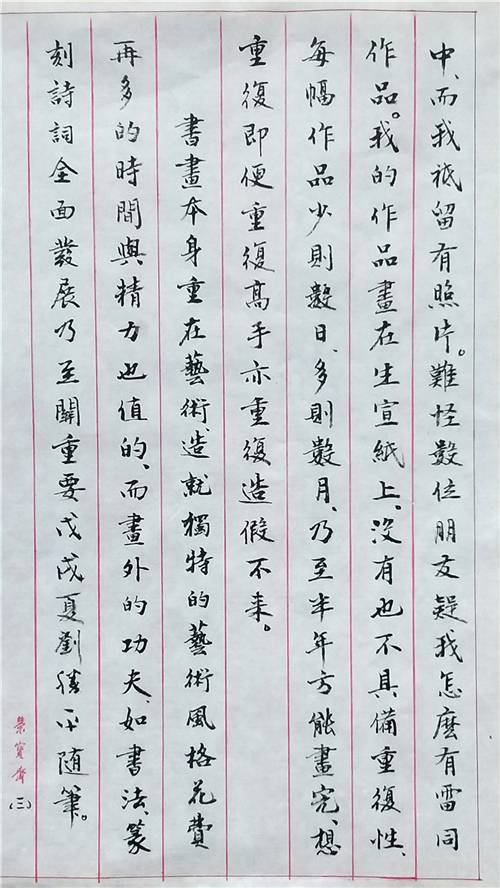 中、而我祇留有照片。難怪數位朋友疑我怎麼有雷同
作品。我的作品畫在生宣紙上、沒有也不具備重復性、
每幅作品少則數日、多則數月、乃至半年方能畫完、想
重復即便重復高手亦重復造假不来。
書畫本身重在藝術、造就獨特的藝術風格花費
再多的時間與精力也值的、而畫外的功夫、如書法、篆
刻詩詞全面發展乃至關重要戊戌夏劉勝平随筆。
榮寳齋
(三)